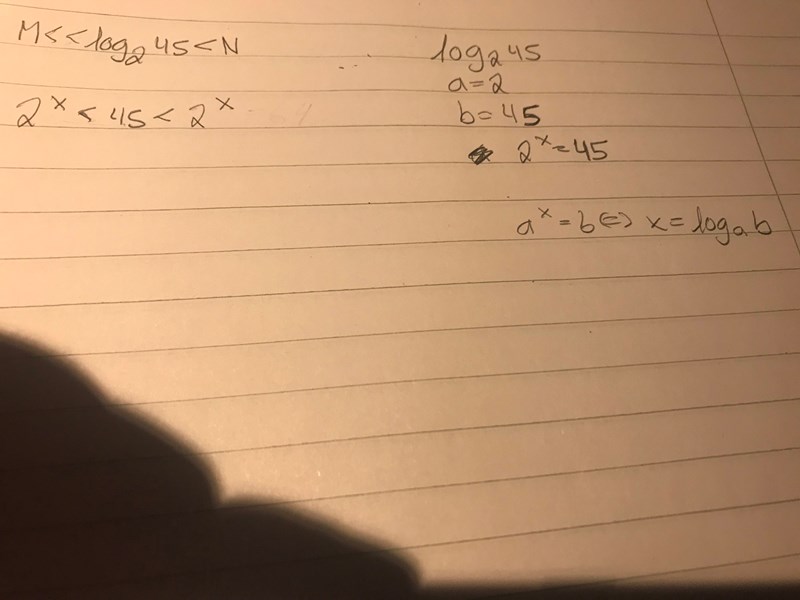 M<<log₂45<N
2ˣ<45<2ˣ
log₂45
a=2
b=45
2ˣ=45
aˣ=b⇔x=logₐb